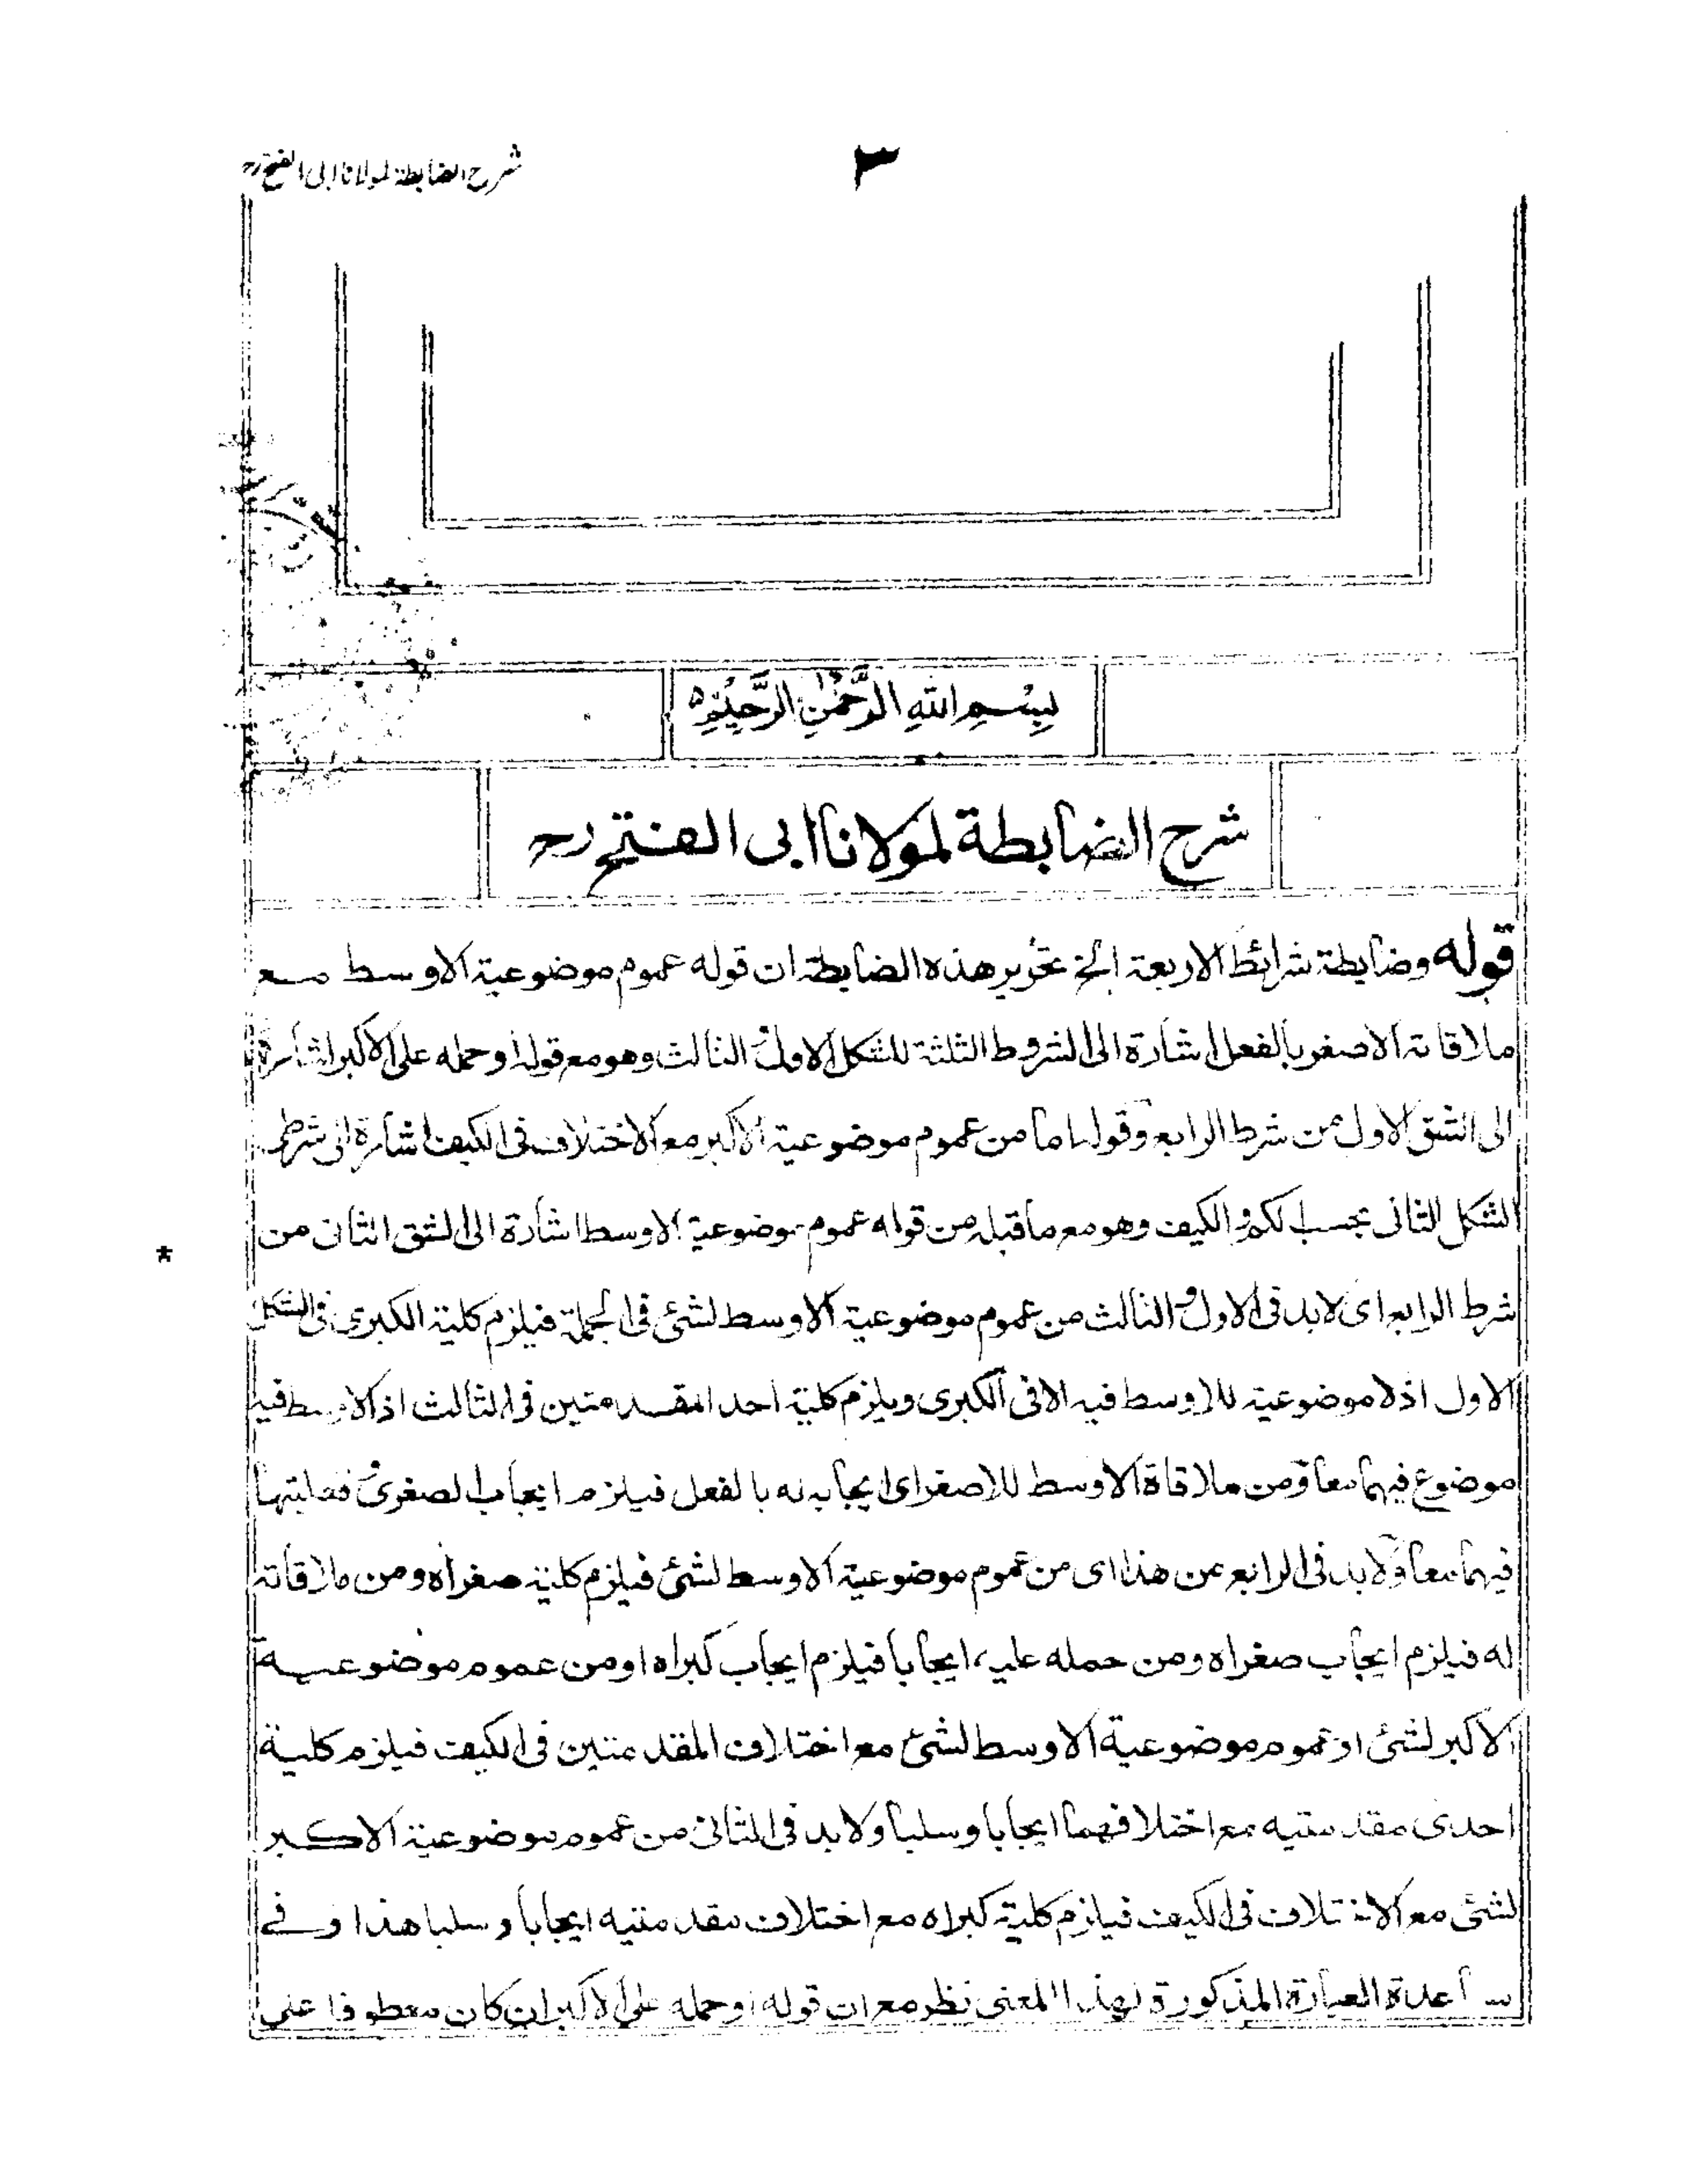 شرح الضابطة لمولانا ابى الفتح رح
٣
بِسْمِ اللهِ الرَّحْمٰنِ الرَّحِيْمِ
شرح الضابطة لمولانا ابى الفتح رح
قوله وضابطة شرائط الاربعة الخ تحرير هذه الضابطة ان قوله عموم موضوعية الاوسط مع
ملاقاته الاصغر بالفعل اشارة الى الشروط الثلثة للشكل الاول والثالث وهو مع قوله او حمله على الاكبر اشارة
الى الشق الاول من شرط الرابع وقوله اما من عموم موضوعية الاكبر مع الاختلاف فى الكيف اشارة الى شرطى
الشكل الثانى بحسب الكم والكيف وهو مع ما قبله من قوله عموم موضوعية الاوسط اشارة الى الشق الثانى من
شرط الرابع اى لابد فى الاول والثالث من عموم موضوعية الاوسط لشئ فى الجملة فيلزم كلية الكبرى فى الشكل
الاول اذ لا موضوعية للاوسط فيه الا فى الكبرى ويلزم كلية احد المقدمتين فى الثالث اذ الاوسط فيه
موضوع فيهما معا ومن ملاقاة الاوسط للاصغر اى ايجابه له بالفعل فيلزم ايجاب الصغرى وفعليتها
فيهما معا ولابد فى الرابع من هذا اى من عموم موضوعية الاوسط لشئ فيلزم كلية صغراه ومن ملاقاته
له فيلزم ايجاب صغراه ومن حمله عليه ايجابا فيلزم ايجاب كبراه او من عموم موضوعية
الاكبر لشئ او عموم موضوعية الاوسط لشئ مع اختلاف المقدمتين فى الكيف فيلزم كلية
احدى مقدمتيه مع اختلافهما ايجابا وسلبا ولابد فى الثانى من عموم موضوعية الاكبر
لشئ مع الاختلاف فى الكيف فيلزم كلية كبراه مع اختلاف مقدمتيه ايجابا وسلبا هذا وفى
مساعدة العبارة المذكورة لهذا المعنى نظر مع ان قوله او حمله على الاكبر ان كان معطوفا على
*